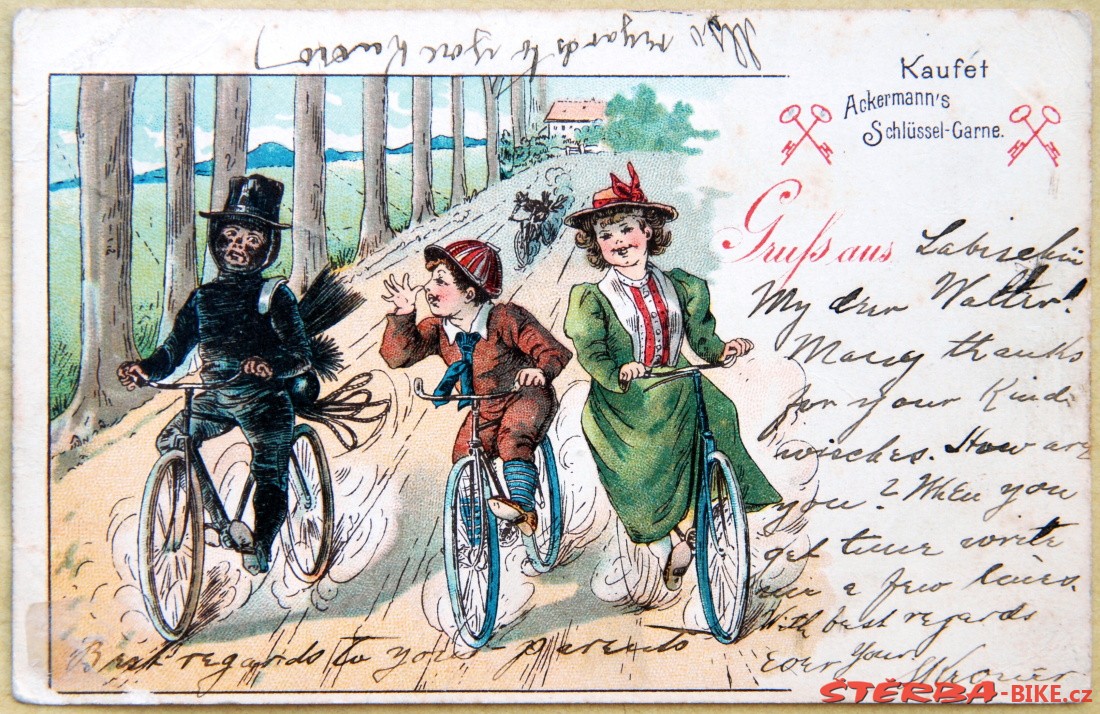 Kaufet
Ackermann's
Schlüssel-Garne.
Gruß aus Labischin
My dear Walter!
Many thanks
for your Kind
wisches. How are
you? When you
get time write
me a few lines.
With best regards
Ever Your
Best regards to your parents
regards to
ŠTĚRBA-BIKE.cz